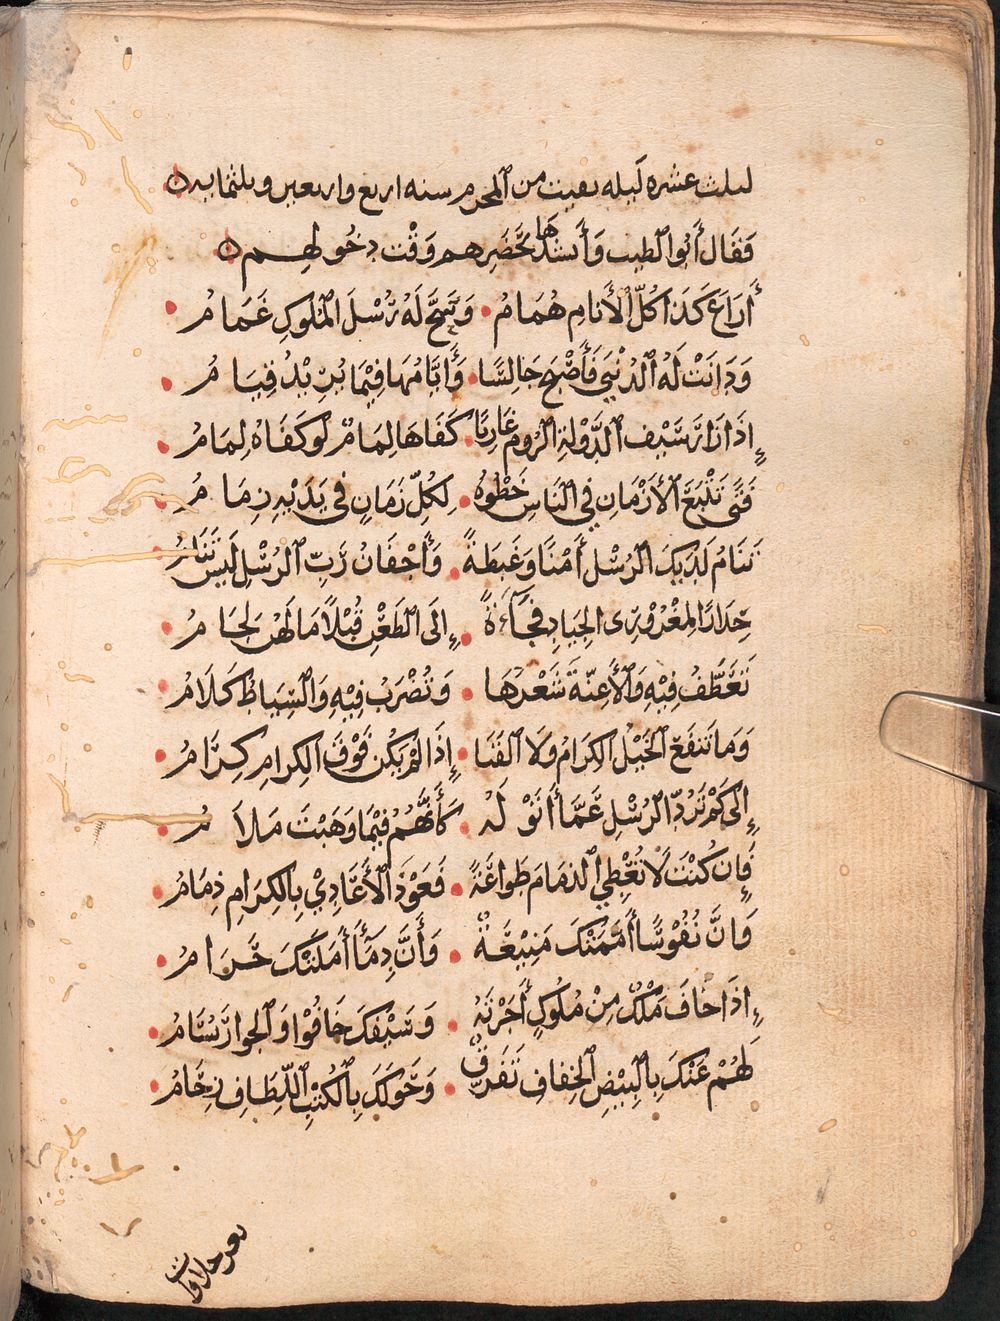 لثلث عشره ليله بقيت من المحرم سنه اربع واربعين وثلثمايه
فَقَال أَبُوالطيب وَأَنشدَها بحَضرِهم وَقْت دخولهم
أَرَاعَ كَذَا كُلَّ الأَنامِ هُمَامُ وَسَحَّ لَهُ رُسْلَ المُلوكِ غَمَامُ
وَدَانَتْ لَهُ الدُنْيَى فَأَصْبَحَ جَالِسًا وَأَيَّامُهَا فِيمَا يُرِيْدُ قِيَامُ
إِذَا زَارَ سَيْفُ الدَّوْلَةِ الرُومَ غَازِيًا كَفَاهَا لِمَامٌ لَوكَفَاهُ لِمَامُ
فَتًى تَتْبَعُ الأَزْمَانِ فِي النَاسِ خَطْوُهُ لِكُلِّ زَمَانٍ في يَدَيْهِ زِمَامُ
تَنَامُ لَدَيكَ الرُسْلُ أَمْنًا وَغَبطَةً وَأَجْفَانُ رَبِّ الرُسْلِ لَيسَ تَنَامُ
حِذَارًا لِمُعْرَوْرِى الجِيَادِ فُجَآءَةً إِلَى الطَعْنِ قُبْلاً مَا لَهُنَّ لِجَامُ
تَعَطَّفُ فِيْهِ وَالأَعِنَّةُ شَعْرُهَا وَتُضْرَبُ فِيْهِ وَالسِيَاطُ كَلَامُ
وَمَا تَنفَعُ الخَيْلُ الكِرَامُ وَلَا القَنَا إِذَا لَمْ يَكُن فَوْقَ الكِرامِ كِرَامُ
إِلى كَمْ تَرُدُّ الرُسْلِ عَمَّا أَتَوْا لَهُ كَأَنَّهُمُ فِيْمَا وَهَبْتَ مَلَامُ
فَإِن كُنْتَ لَا تُعْطِي الذمَامَ طَوَاعَةً فَعَوْذُ الأَعَادِيْ بِالكِرَامِ ذِمَامُ
وَانَّ نُفُوْسًا أَمَّمَتْكَ مَنِيْعَةٌ وَأَنَّ دِمَأً أَمَلَتْكَ حَرَامُ
إِذَا خَافَ مَلْكٌ مِنْ مُلُوكٍ أَجَرْتَهُ وَسَيْفَكَ خَافُوا وَالجِوارَ تُسَامُ
لَهُمْ عَنْكَ بِالبِيْضِ الخِفافِ تَفَرّقٌ وَحَولَكَ بِالكُتْبِ اللِّطَافِ زِحَامُ